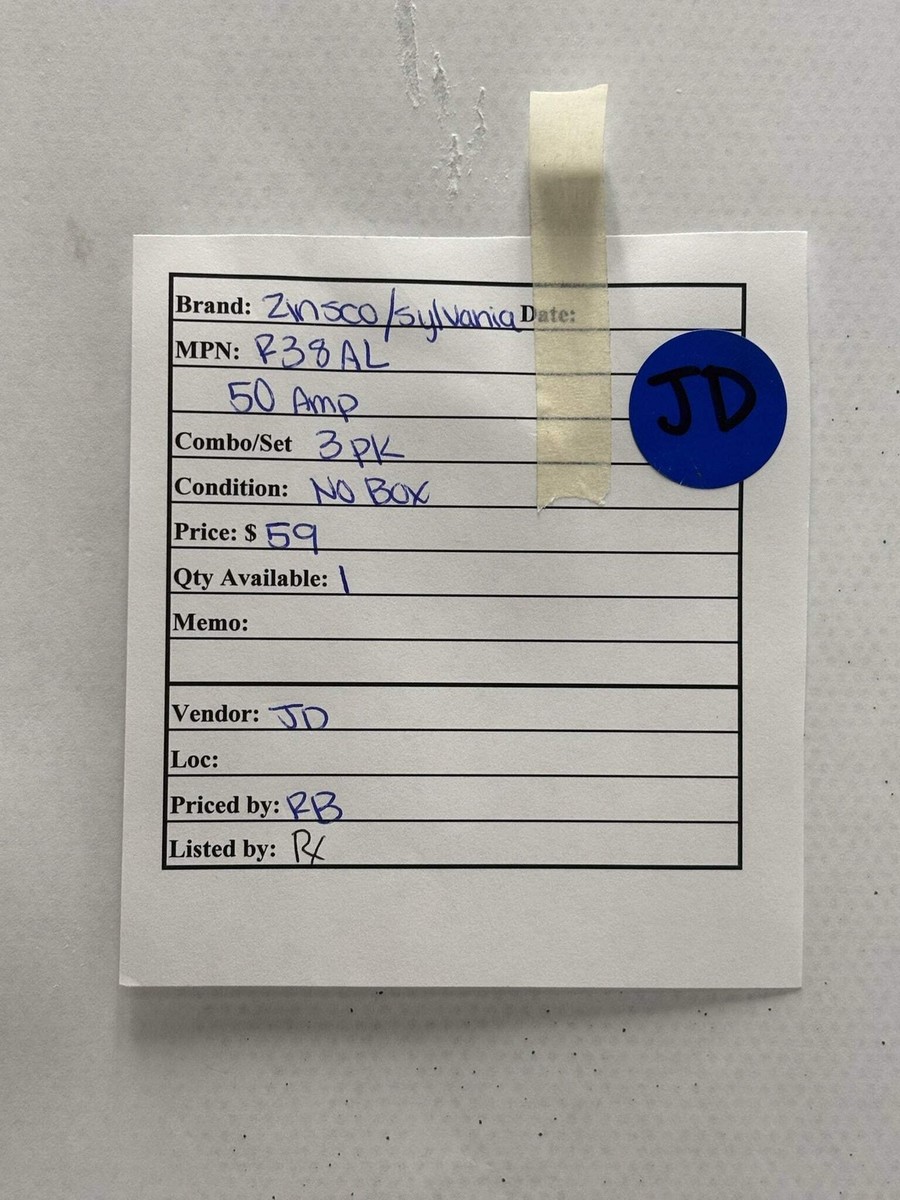 Brand: Zinsco/Sylvania Date:
MPN: R38AL
50 Amp
JD
Combo/Set 3pk
Condition: No Box
Price: $ 59
Qty Available: 1
Memo:
Vendor: JD
Loc:
Priced by: RB
Listed by: RX